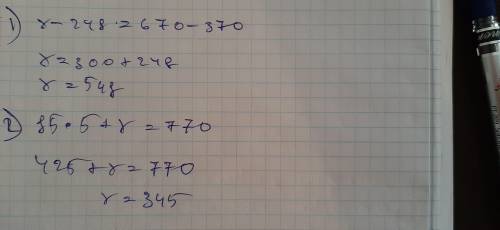 1) x-248=670-370
x=300+248
x=548
2) 85•5+x=770
425+x=770
x=345